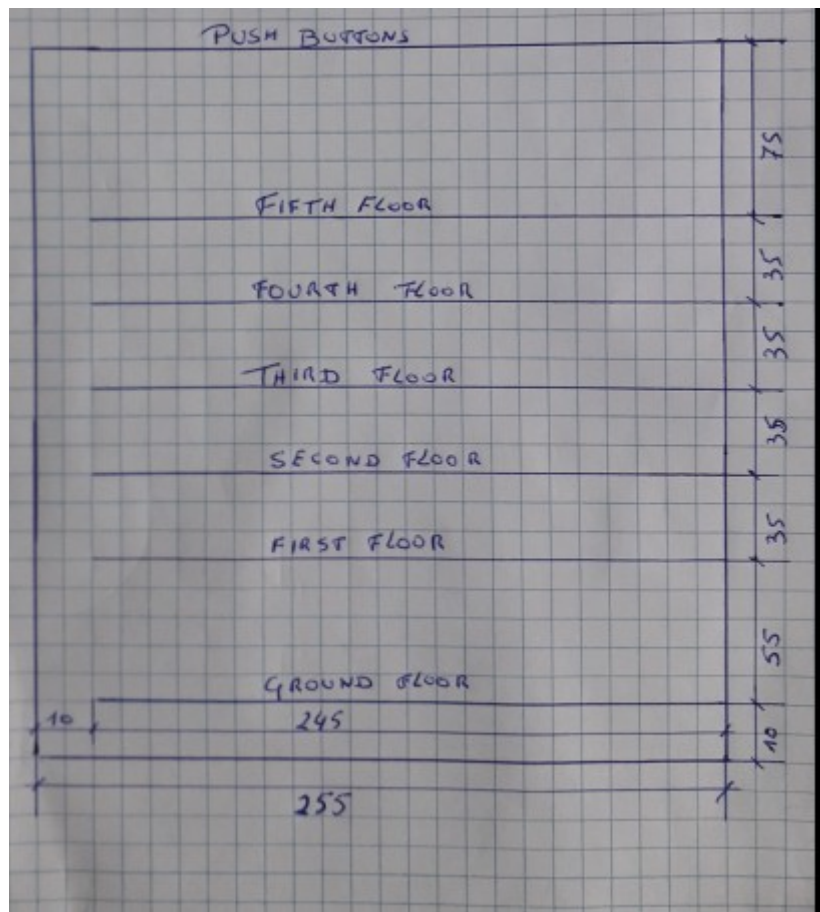 PUSH BUTTONS
75
FIFTH FLOOR
35
FOURTH FLOOR
35
THIRD FLOOR
35
SECOND FLOOR
35
FIRST FLOOR
55
GROUND FLOOR
10 245 10
255